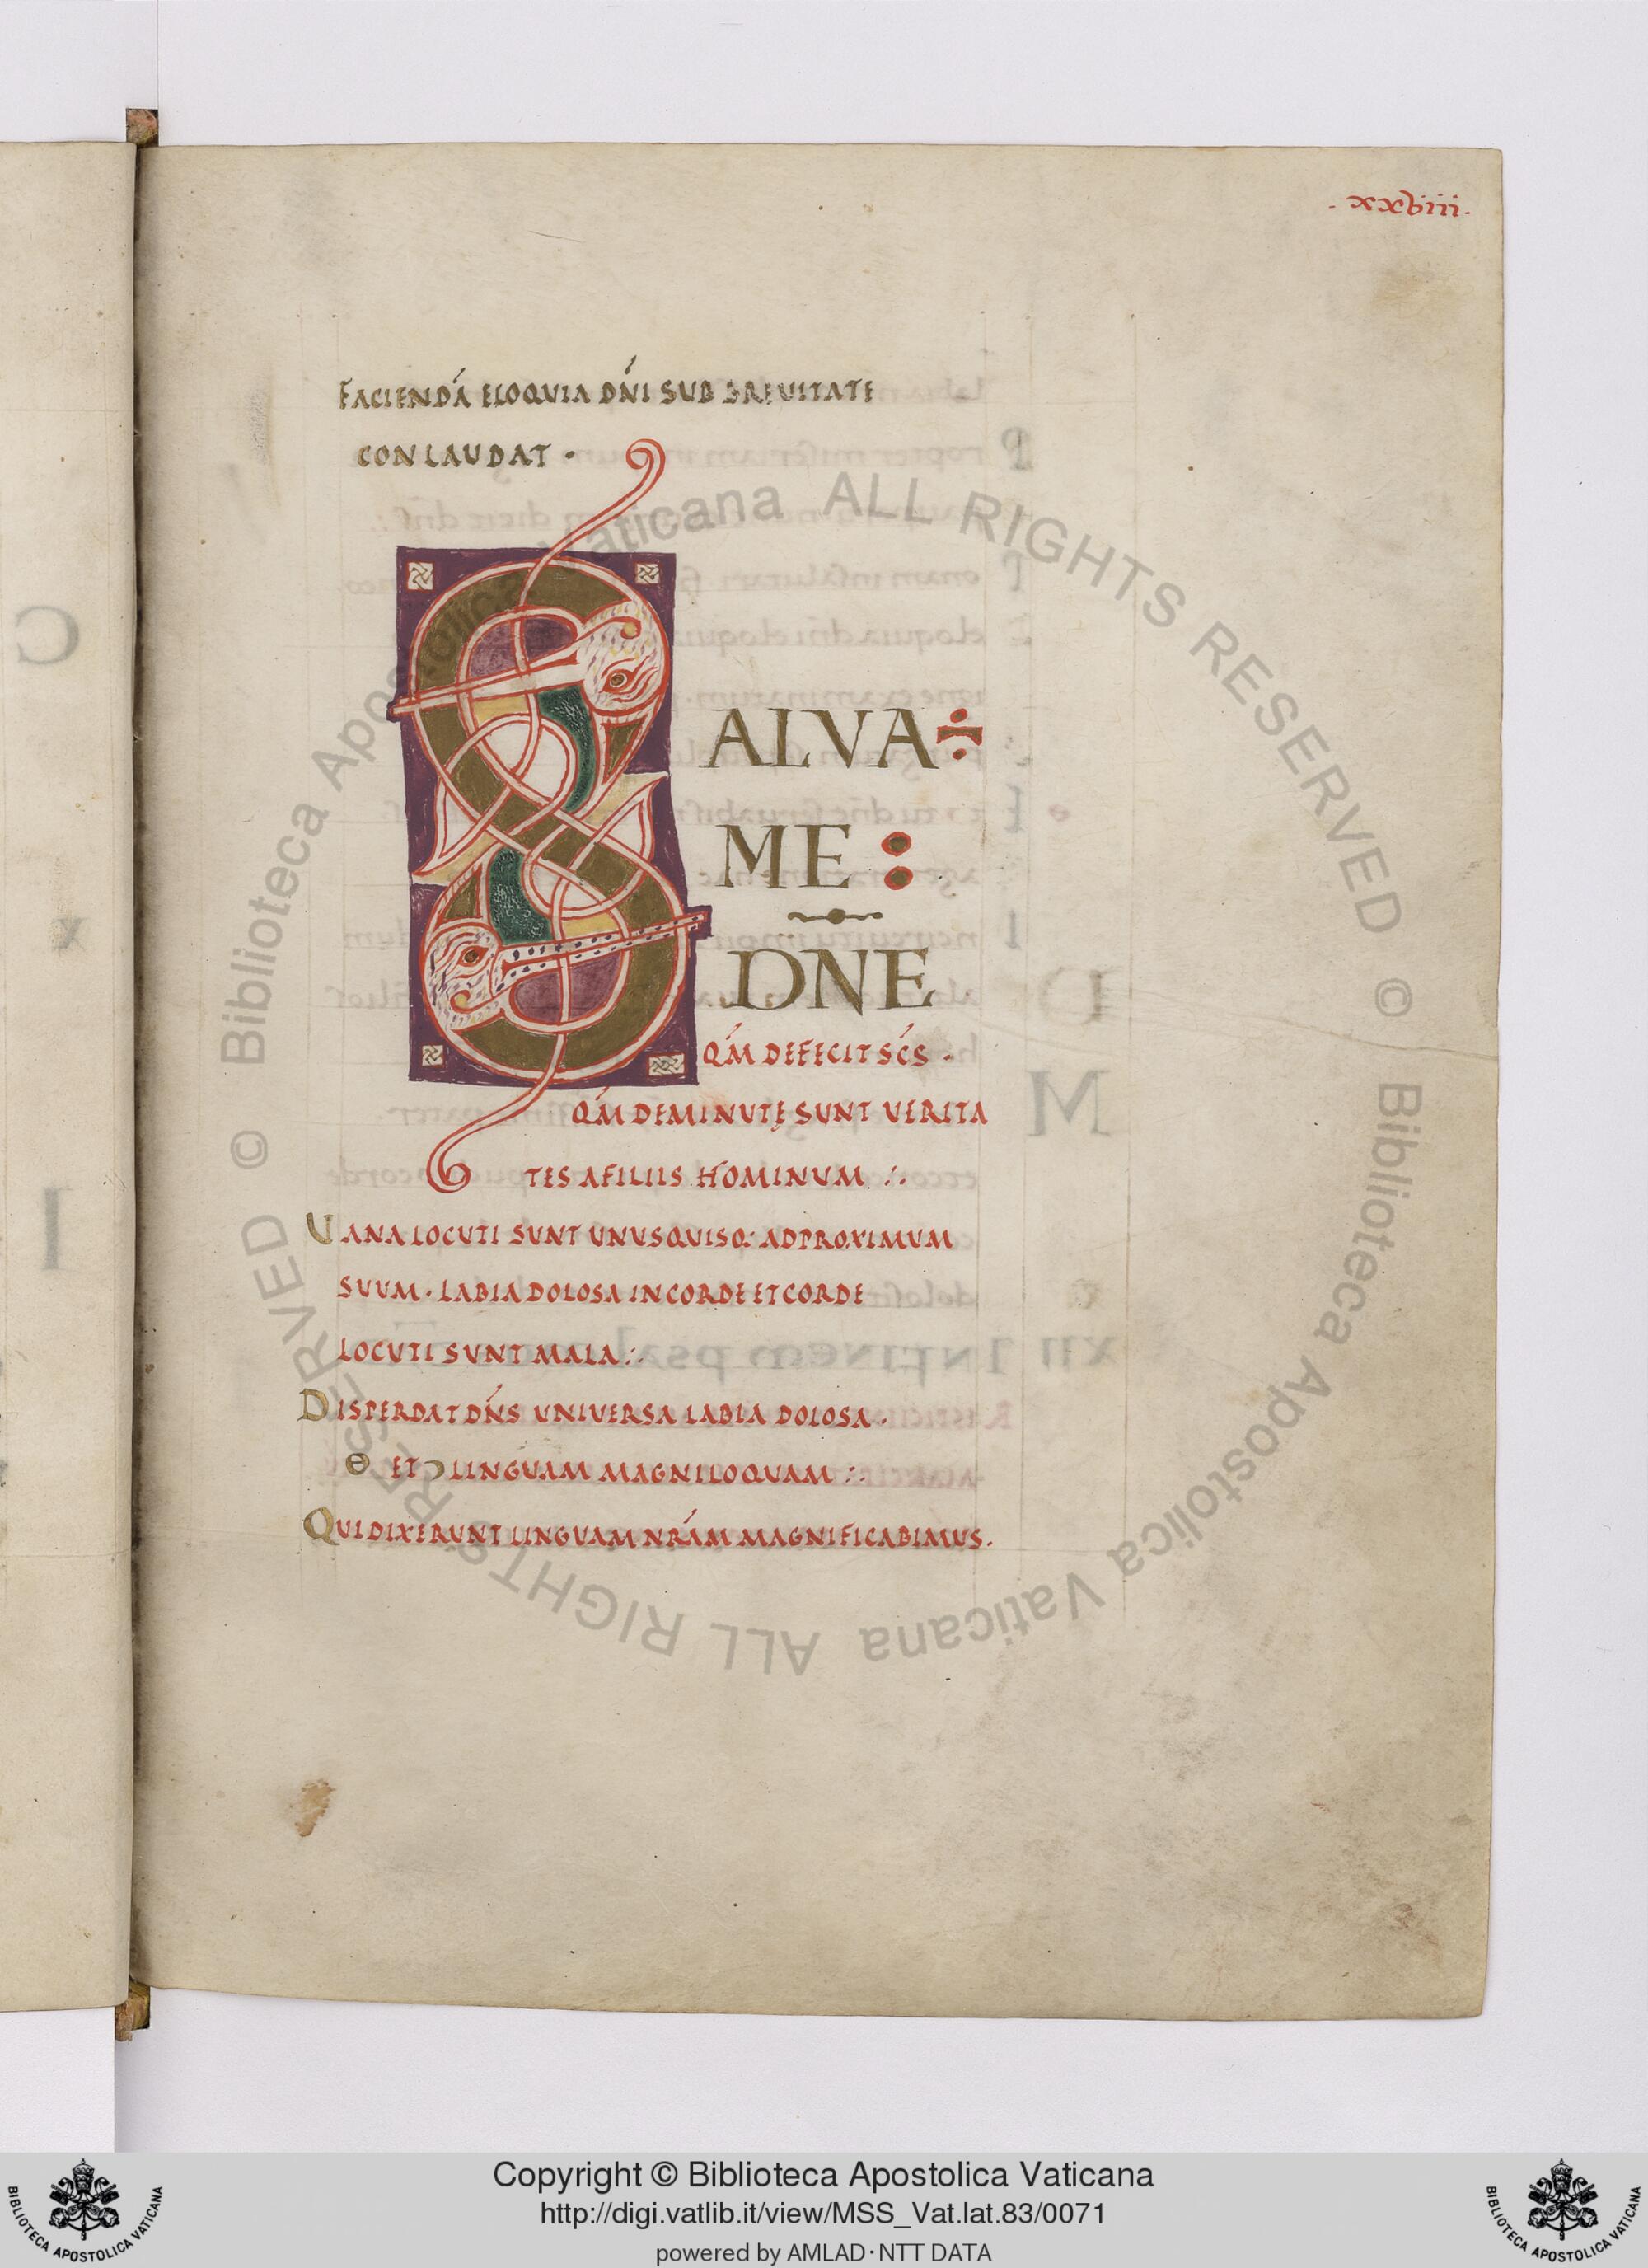 .xxviii.
FACIENDA ELOQUIA DNI SUB BREUITATE
CONLAUDAT .
SALVA ÷
ME :
DNE
QM DEFECIT SCS .
QM DEMINUTĘ SUNT VERITA
TES A FILIIS HOMINUM :.
UANA LOCUTI SUNT UNUSQUISQ: AD PROXIMUM
SUUM . LABIA DOLOSA IN CORDE ET CORDE
LOCUTI SUNT MALA :.
DISPERDAT DNS UNIVERSA LABIA DOLOSA .
ET LINGUAM MAGNILOQUAM :.
QUI DIXERUNT LINGUAM NRAM MAGNIFICABIMUS .
© Biblioteca Apostolica Vaticana ALL RIGHTS RESERVED © Biblioteca Apostolica Vaticana ALL RIGHTS RESERVED
Copyright © Biblioteca Apostolica Vaticana
http://digi.vatlib.it/view/MSS_Vat.lat.83/0071
powered by AMLAD·NTT DATA
BIBLIOTECA APOSTOLICA VATICANA
BIBLIOTECA APOSTOLICA VATICANA